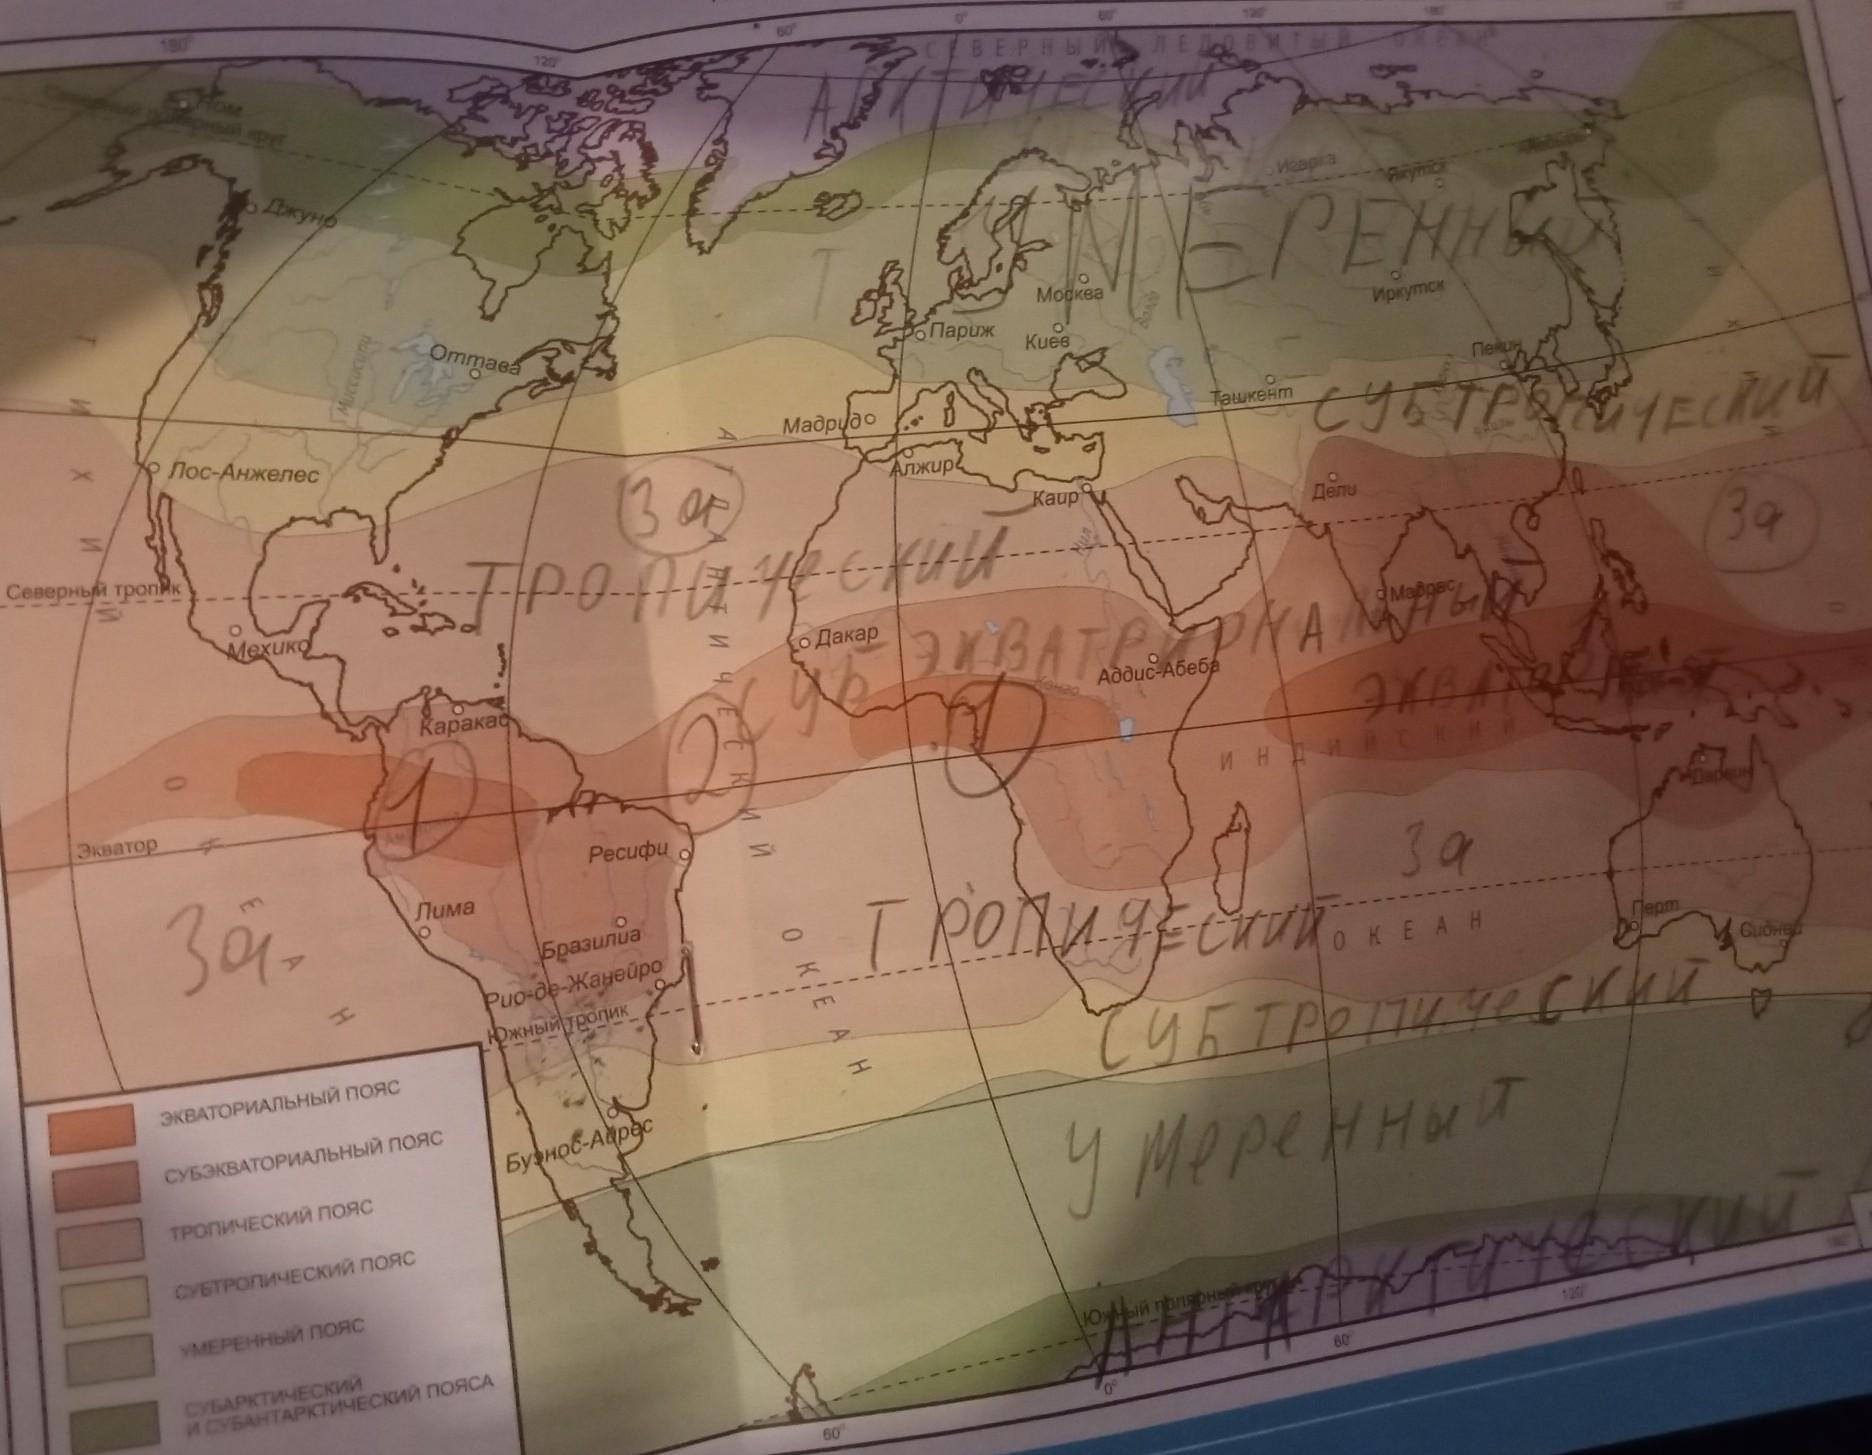 180°
120°
60°
0°
60°
120°
180°
СЕВЕРНЫЙ ЛЕДОВИТЫЙ ОКЕАН
АРКТИЧЕСКИЙ
Ном
Северный полярный круг
Игарка
Якутск
Джуно
УМЕРЕННЫЙ
Москва
Иркутск
Париж
Киев
Пекин
Оттава
Миссисипи
Ташкент
СУБТРОПИЧЕСКИЙ
Мадрид
Алжир
Лос-Анжелес
Каир
Дели
3а
3а
ТИХИЙ
АТЛАНТИЧЕСКИЙ
Нил
ТРОПИЧЕСКИЙ
Северный тропик
Мадрас
Мехико
Дакар
СУБ-ЭКВАТРИОНАЛЬНЫЙ
Аддис-Абеба
Конго
Каракас
1
2
1
ИНДИЙСКИЙ
Дарвин
Экватор
Ресифи
3а
3а
Лима
ТРОПИЧЕСКИЙ
ОКЕАН
Перт
Сидней
Бразилиа
Рио-де-Жанейро
ОКЕАН
ОКЕАН
Южный тропик
СУБТРОПИЧЕСКИЙ
Буэнос-Айрес
Умеренный
АНТАРКТИЧЕСКИЙ
Южный полярный круг
ЭКВАТОРИАЛЬНЫЙ ПОЯС
СУБЭКВАТОРИАЛЬНЫЙ ПОЯС
ТРОПИЧЕСКИЙ ПОЯС
СУБТРОПИЧЕСКИЙ ПОЯС
УМЕРЕННЫЙ ПОЯС
СУБАРКТИЧЕСКИЙ
И СУБАНТАРКТИЧЕСКИЙ ПОЯСА
60°
0°
60°
120°